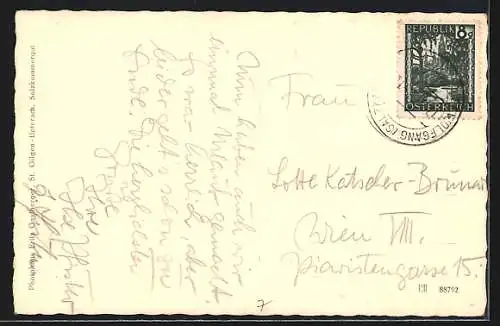 Photohaus Fritz St. Gilgen-Unterach, Salzkammergut
Nun haben auch wir
einmal Urlaub gemacht.
Es war herrlich aber
leider geht's schon zu
Ende. Die herzlichsten
Grüße
Ihre
Ilse
REPUBLIK 8g
ÖSTERREICH
WOLFGANG
Frau
Lotte Katscher-
Wien VIII.
Piaristengasse 15.
88792
7